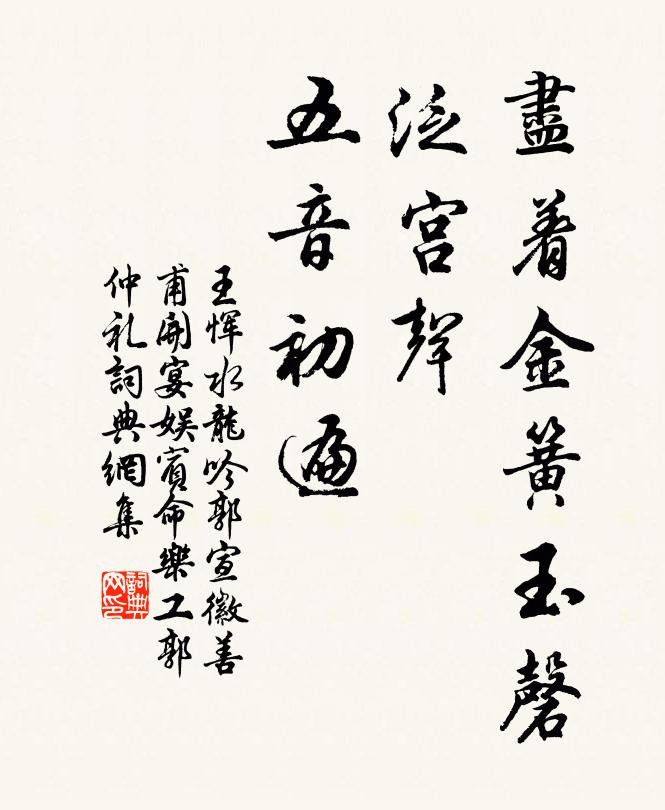 盡着金簧玉磬
泛宮聲
五音初遍
王惲水龍吟郭宣徽善
甫開宴娛賓命樂工郭
仲礼詞典網集
詞典网印